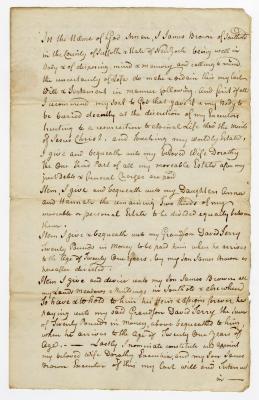 In the Name of God Amen, I James Brown of Southold
in the County of Suffolk & State of New York being well in
Body & of disposing mind & memory and calling to mind
the uncertainty of Life do make & ordain this my last
Will & Testament in manner following, and first of all
I recommend my Soul to God that gave it & my Body to
be buried decently at the discretion of my Executors
trusting to a resurrection to eternal Life thro the merits
of Jesus Christ. And touching my worldly Estate,
I give and bequeath unto my beloved Wife Dorothy
the One third Part of all my moveable Estate after my
just Debts & funeral Charges are paid
Item, I give and bequeath unto my Daughters
and Hannah the remaining two thirds of my
moveable or personal Estate to be divided equally between
them.
Item I give & bequeath unto my Grandson David Terry
Twenty Pounds in Money to be paid him when he arrives
to the Age of Twenty One Years, by my Son James Brown as
hereafter directed.
Item I give and devise unto my Son James Brown all
my Land meadows & buildings in Southold & elsewhere
To have & to hold to him his Heirs & Assigns forever, he
paying unto my said Grandson David Terry the Sum
of Twenty Pounds in Money, above bequeathed to him,
when he arrives to the Age of Twenty One Years of
Age. — Lastly I nominate constitute and appoint
my beloved Wife Dorothy Executrix and my Son James
Brown Executor of this my last Will and Testament
in